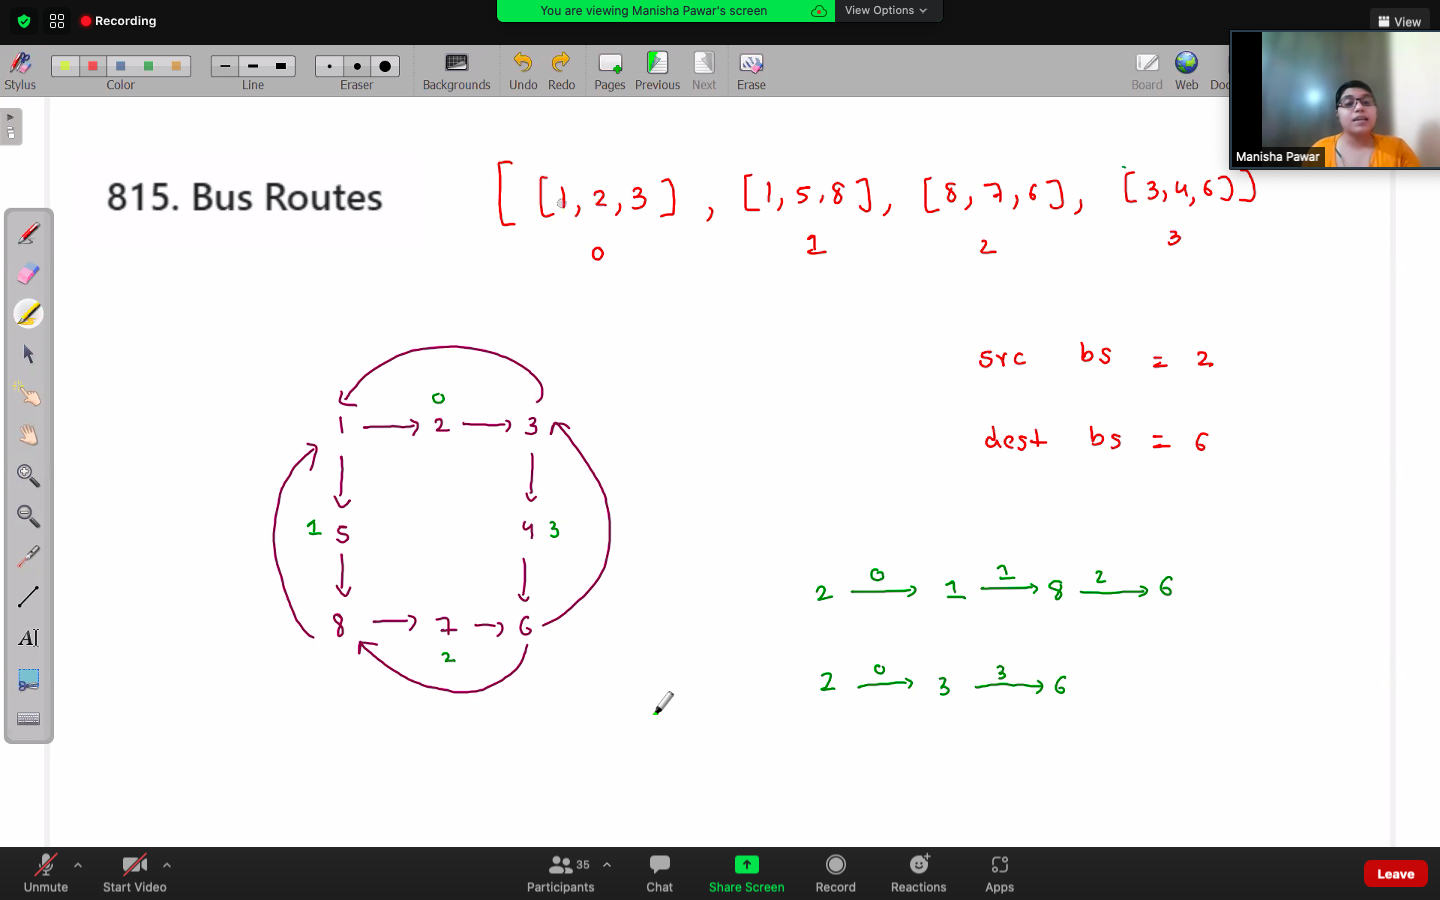 You are viewing Manisha Pawar's screen
View Options
Recording
View
Stylus
Color
Line
Eraser
Backgrounds
Undo
Redo
Pages
Previous
Next
Erase
Board
Web
Manisha Pawar
815. Bus Routes
[ [1, 2, 3] , [1, 5, 8], [8, 7, 6], [3, 4, 6] ]
0 1 2 3
src bs = 2
dest bs = 6
0
1 → 2 → 3
1 5 4 3
8 → 7 → 6
2
2 —0→ 1 —1→ 8 —2→ 6
2 —0→ 3 —3→ 6
AI
Unmute
Start Video
35
Participants
Chat
Share Screen
Record
Reactions
Apps
Leave